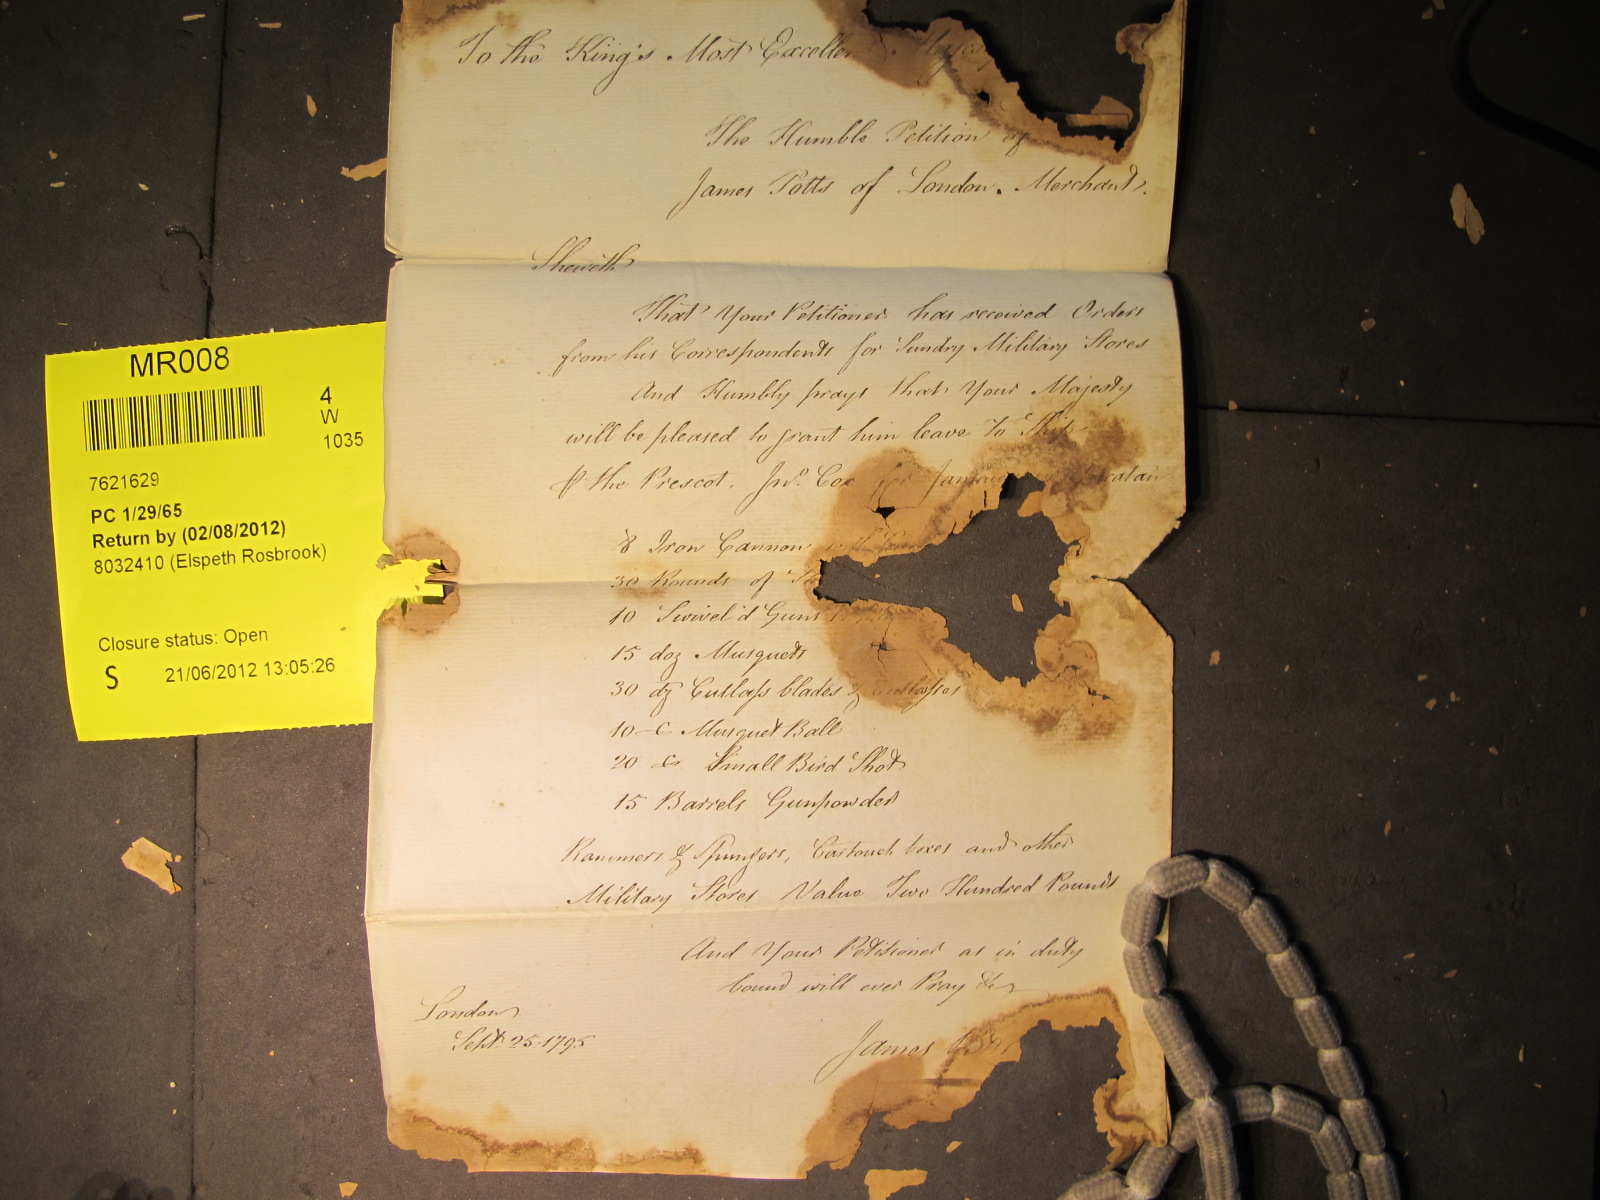 To the King's Most Excellen Majes
The Humble Petition of
James Potts of London. Merchant.
Sheweth
That Your Petitioner has received Orders
from his Correspondents for Sundry Military Stores
And Humbly prays that Your Majesty
will be pleased to grant him leave To Ship
the Prescot. Jno. Cox for Jamai
8 Iron Cannon
30 Rounds of
10 Swivel'd Guns
15 doz Musquets
30 dz Cutlass blades & Cutlasses
10 C Musquet Ball
20 C Small Bird Shot
15 Barrels Gunpowder
Rammers & Spunges, Cartouch boxes and other
Military Stores Value Two Hundred Pounds
And Your Petitioner as in duty
bound will ever Pray &c
London
Sept. 25. 1795
James
MR008
4
W
1035
7621629
PC 1/29/65
Return by (02/08/2012)
8032410 (Elspeth Rosbrook)
Closure status: Open
S 21/06/2012 13:05:26